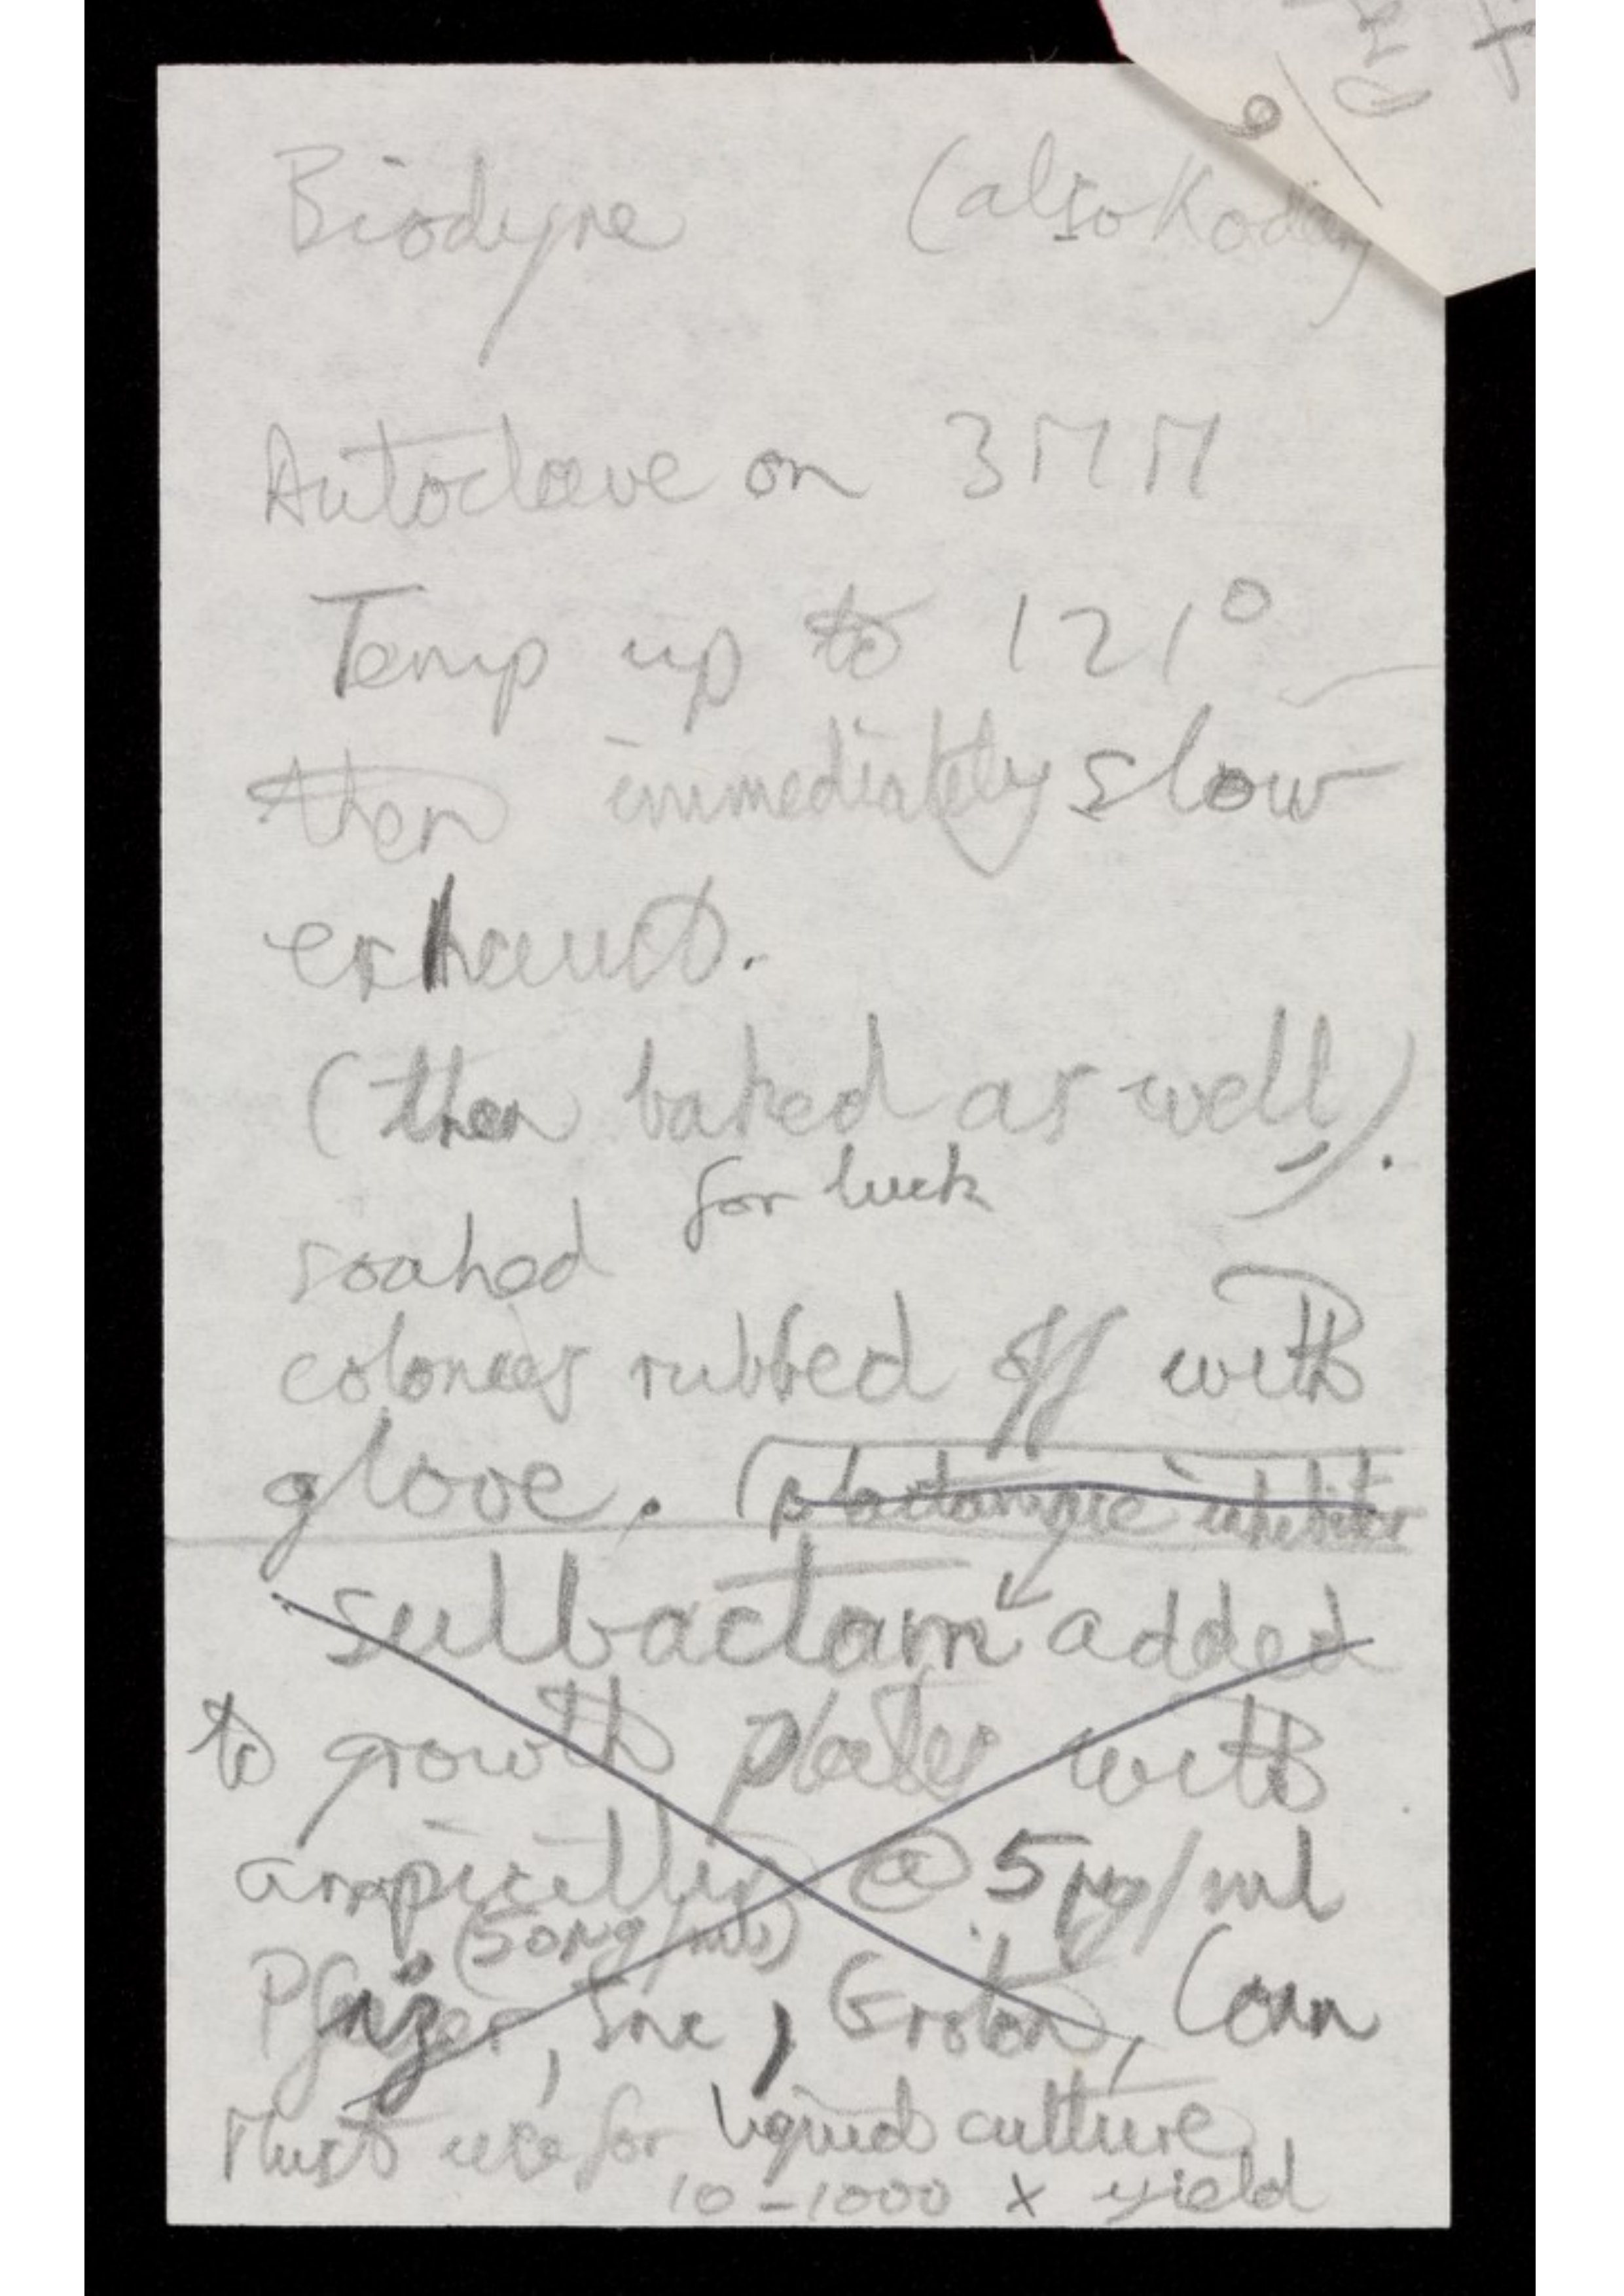 Biodyne (also Kodak)
Autoclave on 3MM
Temp up to 121°
then immediately slow
exhaust.
(then baked as well).
for luck
soaked
colonies rubbed off with
glove. (β lactamase inhibitor
sulbactam added
to growth plates with
ampicillin @ 5 μg/ml
(50μg/ml)
Pfizer, Inc, Groton, Conn
Must use for liquid culture
10-1000 x yield